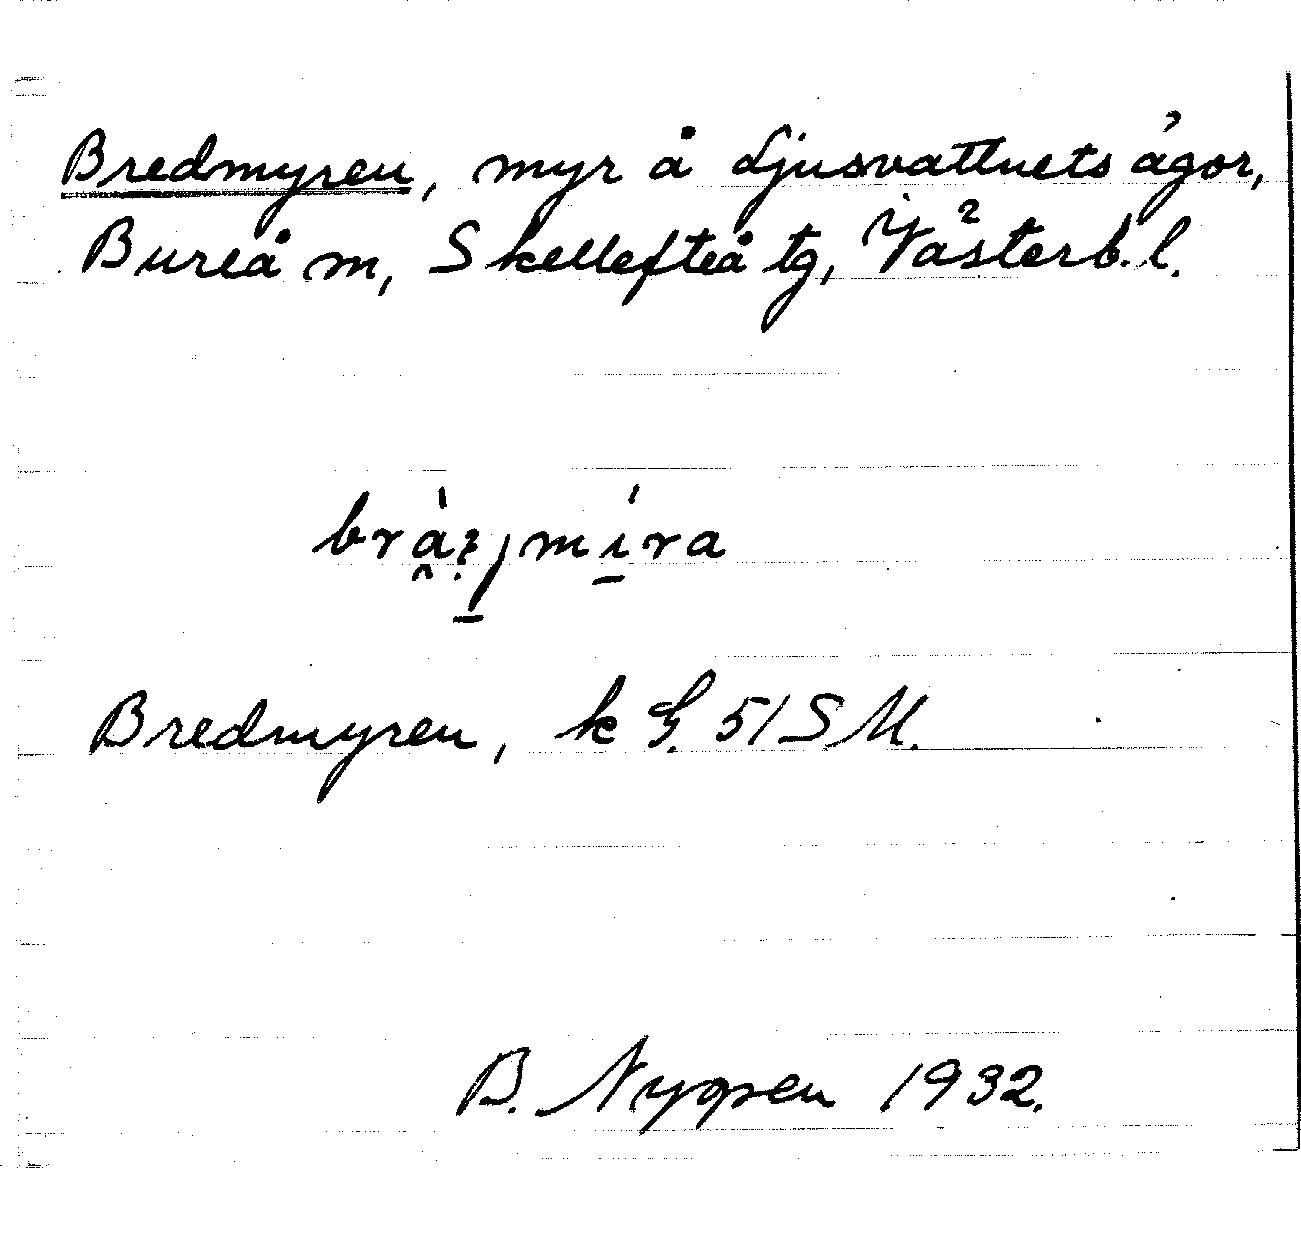 Bredmyren, myr å Ljusvattnets ägor,
Bureå m, Skellefteå tg, Västerb. l.
Bredmyren, k G. 51 S M.
B. 1932.